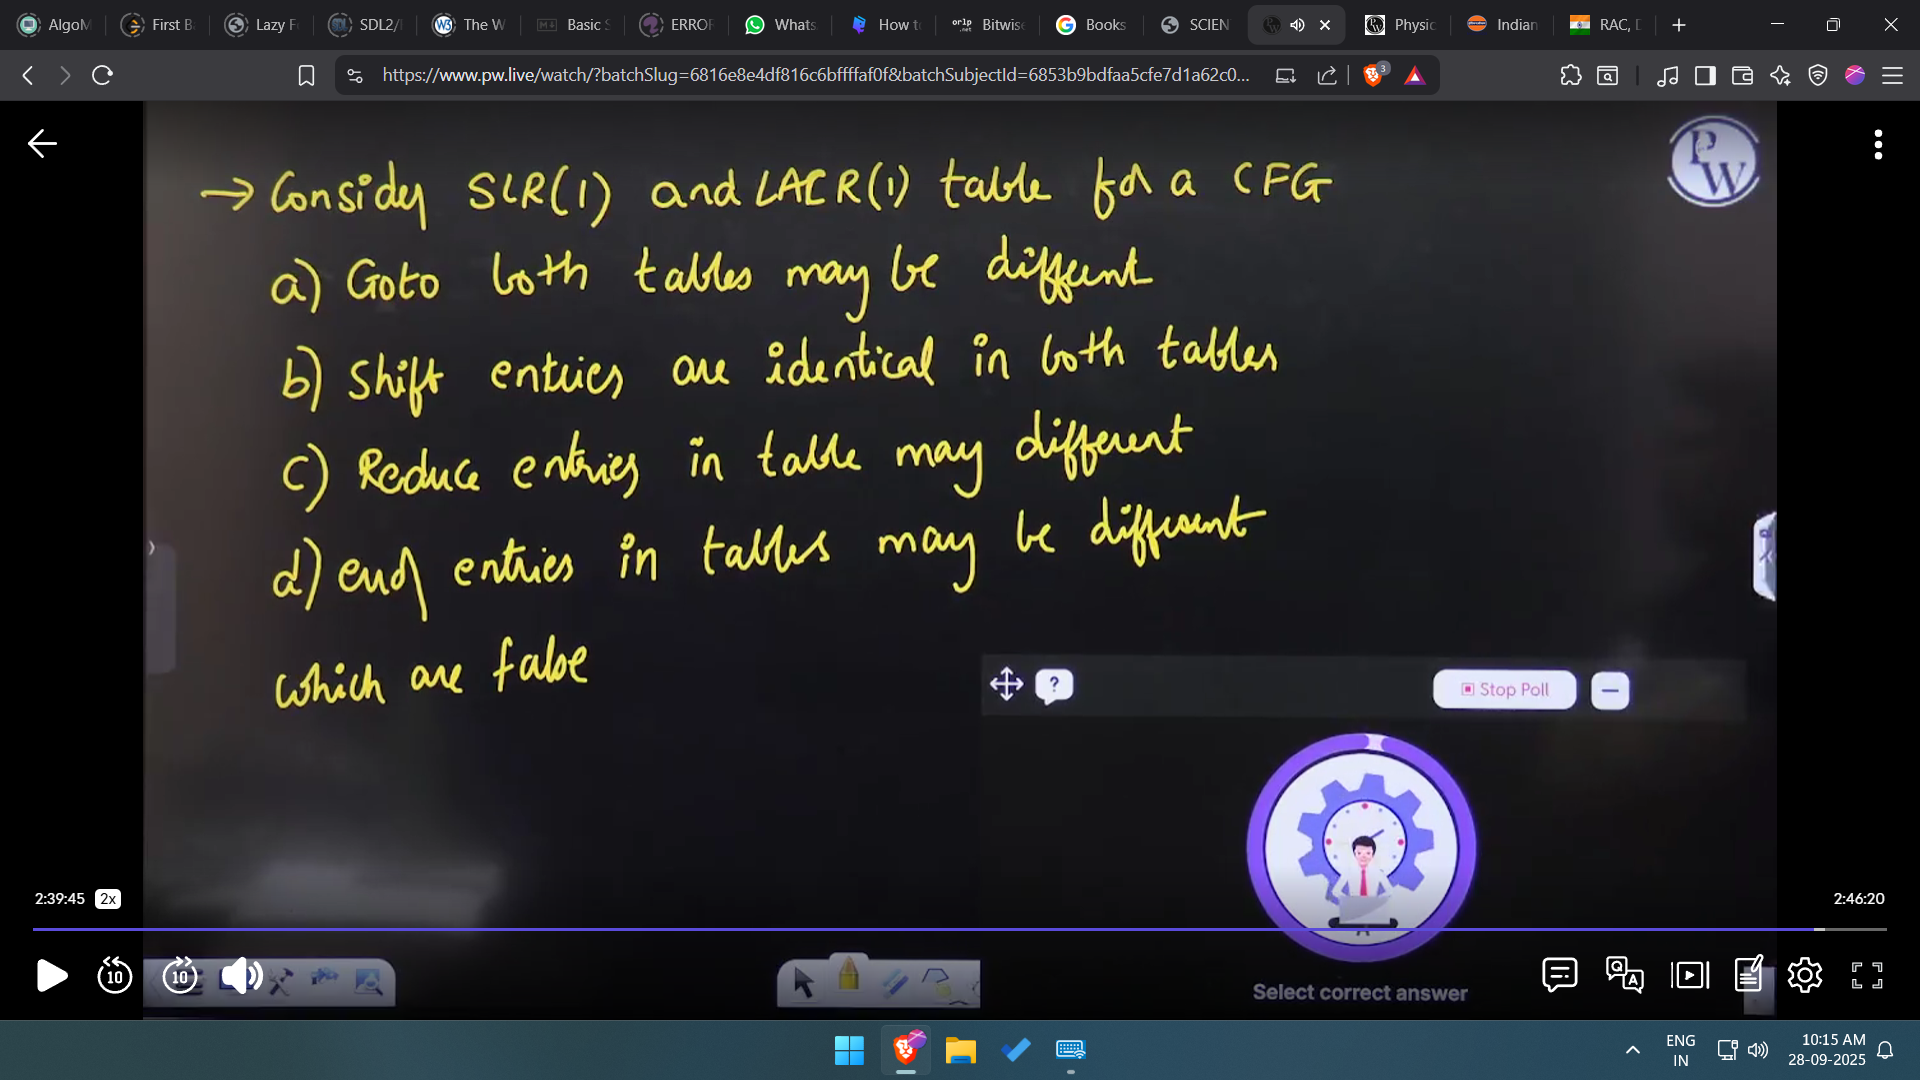 AlgoM
First B
Lazy F
SDL2/
The W
Basic S
ERROR
Whats
How t
Bitwise
Books
SCIEN
Physic
Indian
RAC, D
https://www.pw.live/watch/?batchSlug=6816e8e4df816c6bffffaf0f&batchSubjectId=6853b9bdfaa5cfe7d1a62c0...
3
PW
→ Consider SLR(1) and LALR(1) table for a CFG
a) Goto both tables may be different
b) Shift entries are identical in both tables
c) Reduce entries in table may different
d) entries in tables may be different
which are false
?
Stop Poll
2:39:45 2x
2:46:20
10
10
Select correct answer
Q A
ENG
IN
10:15 AM
28-09-2025